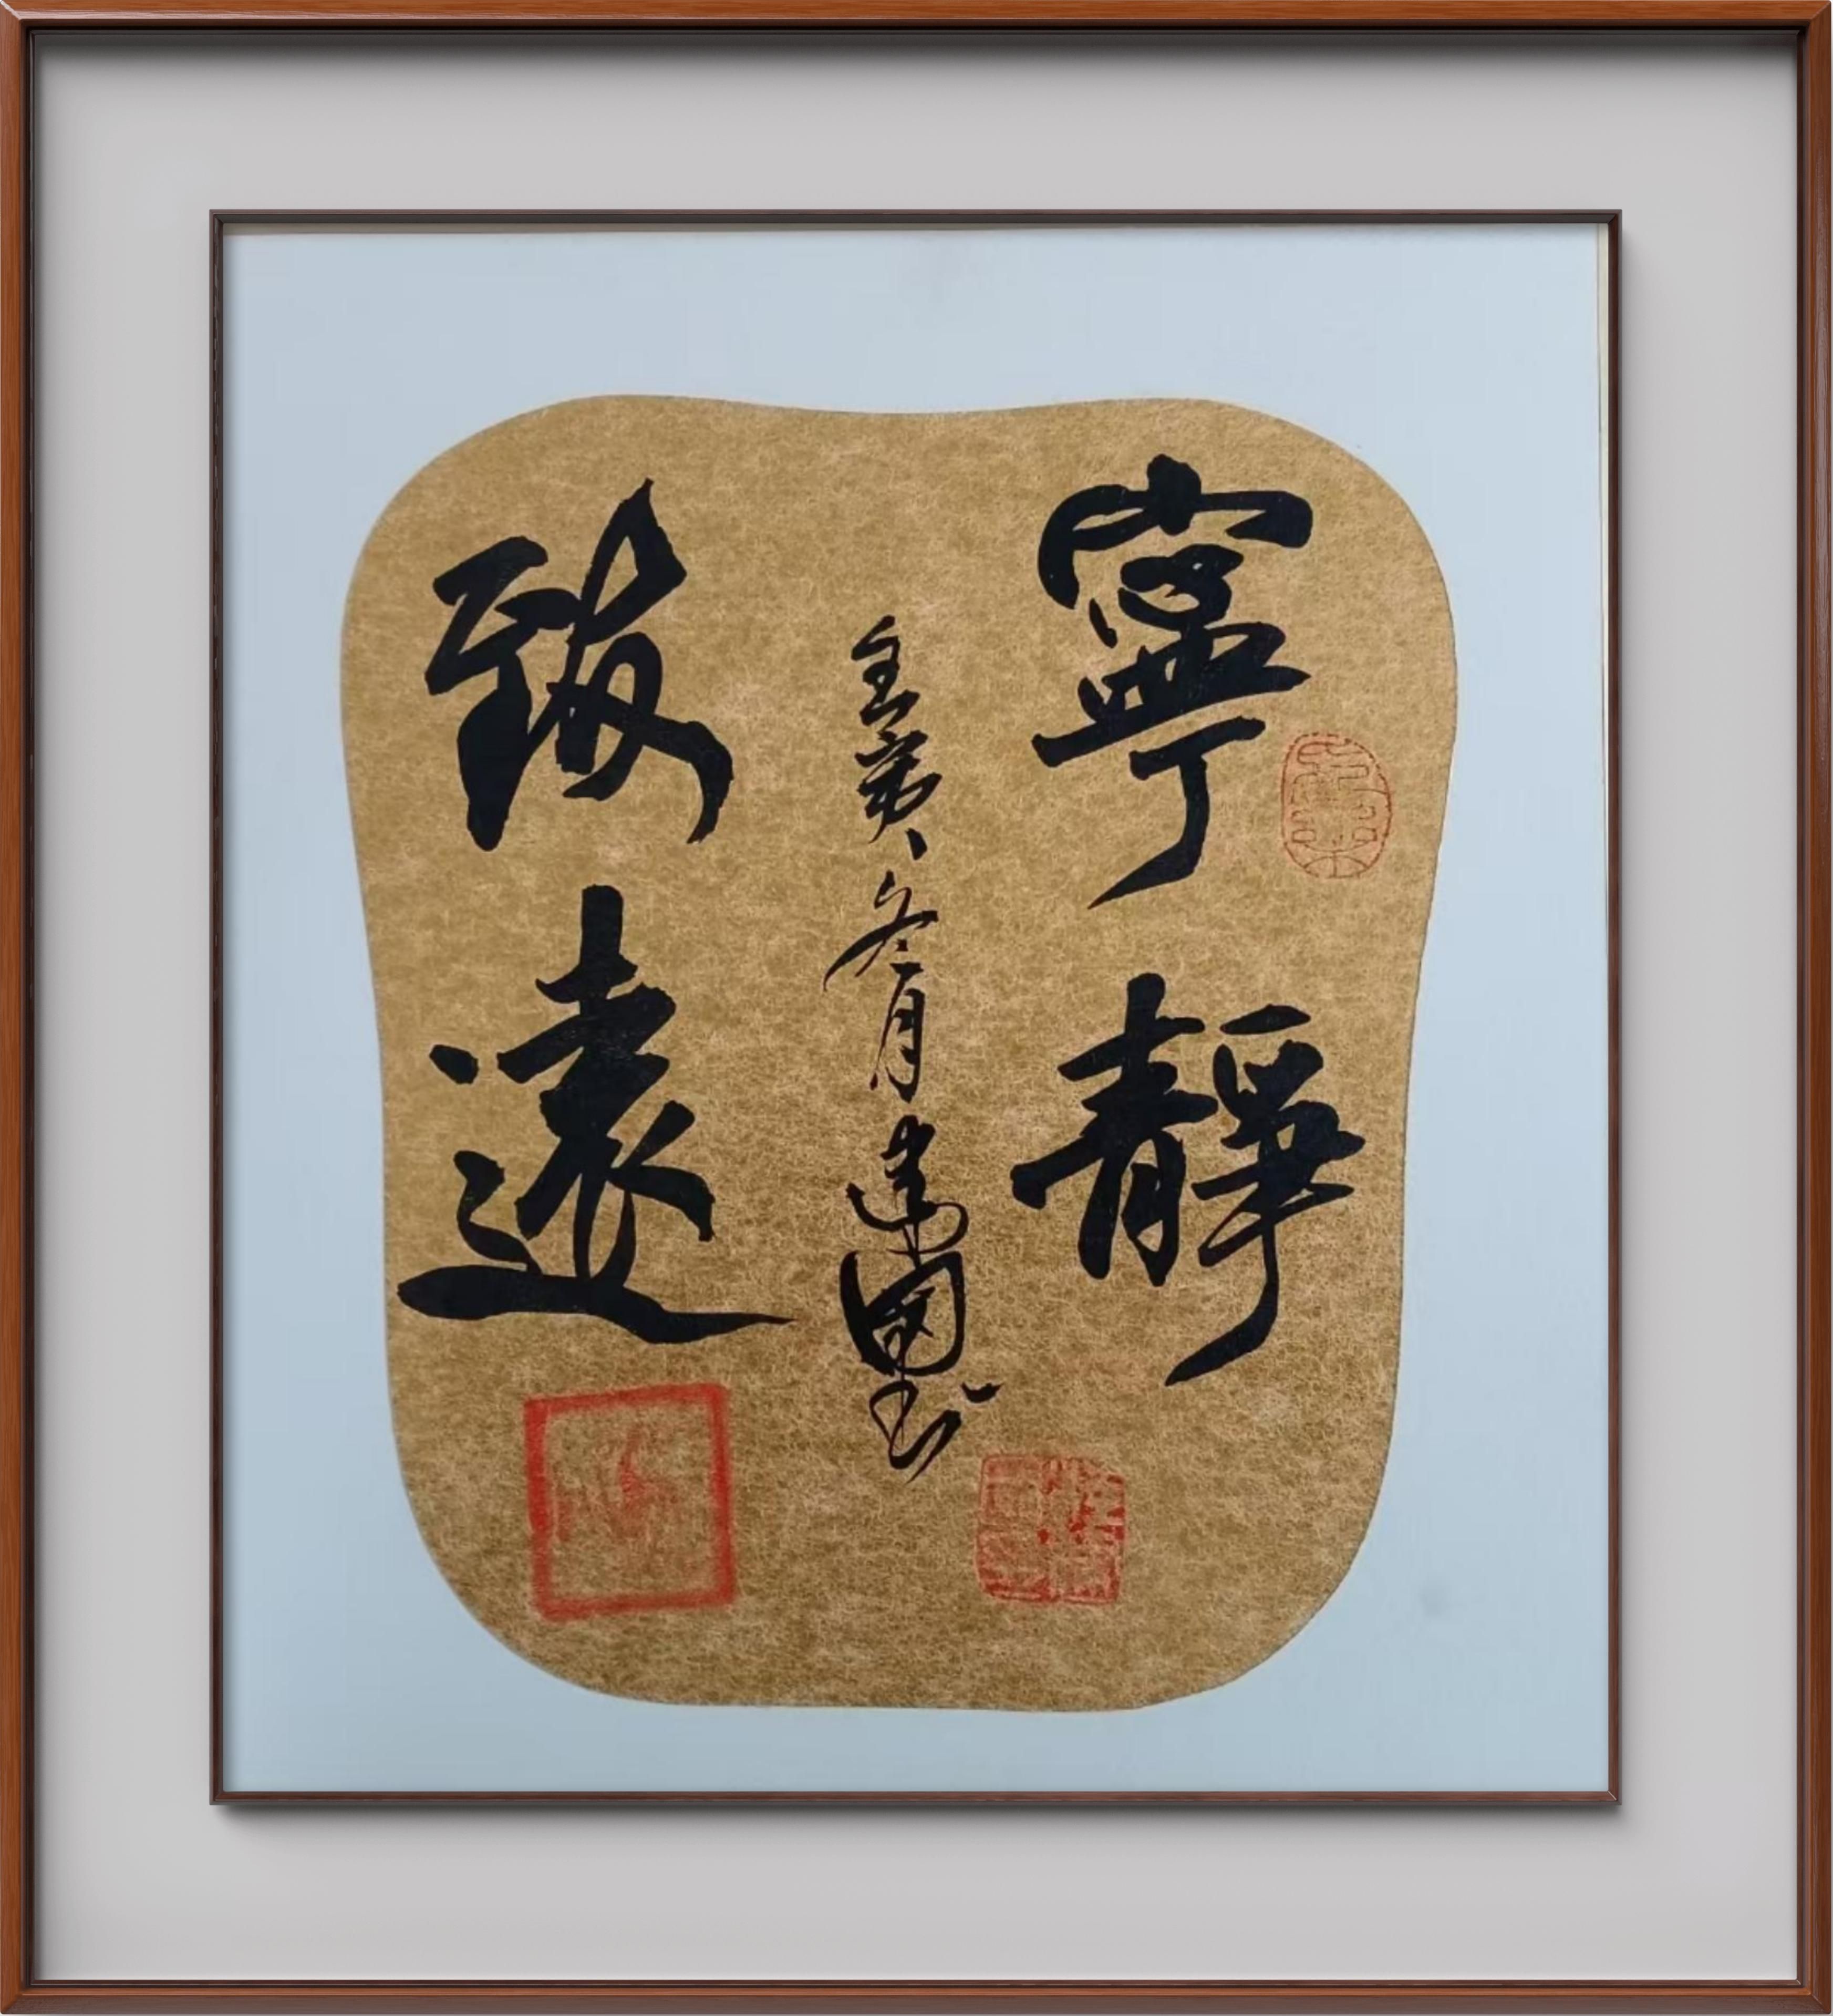 寧靜
致遠
壬寅冬月建國書